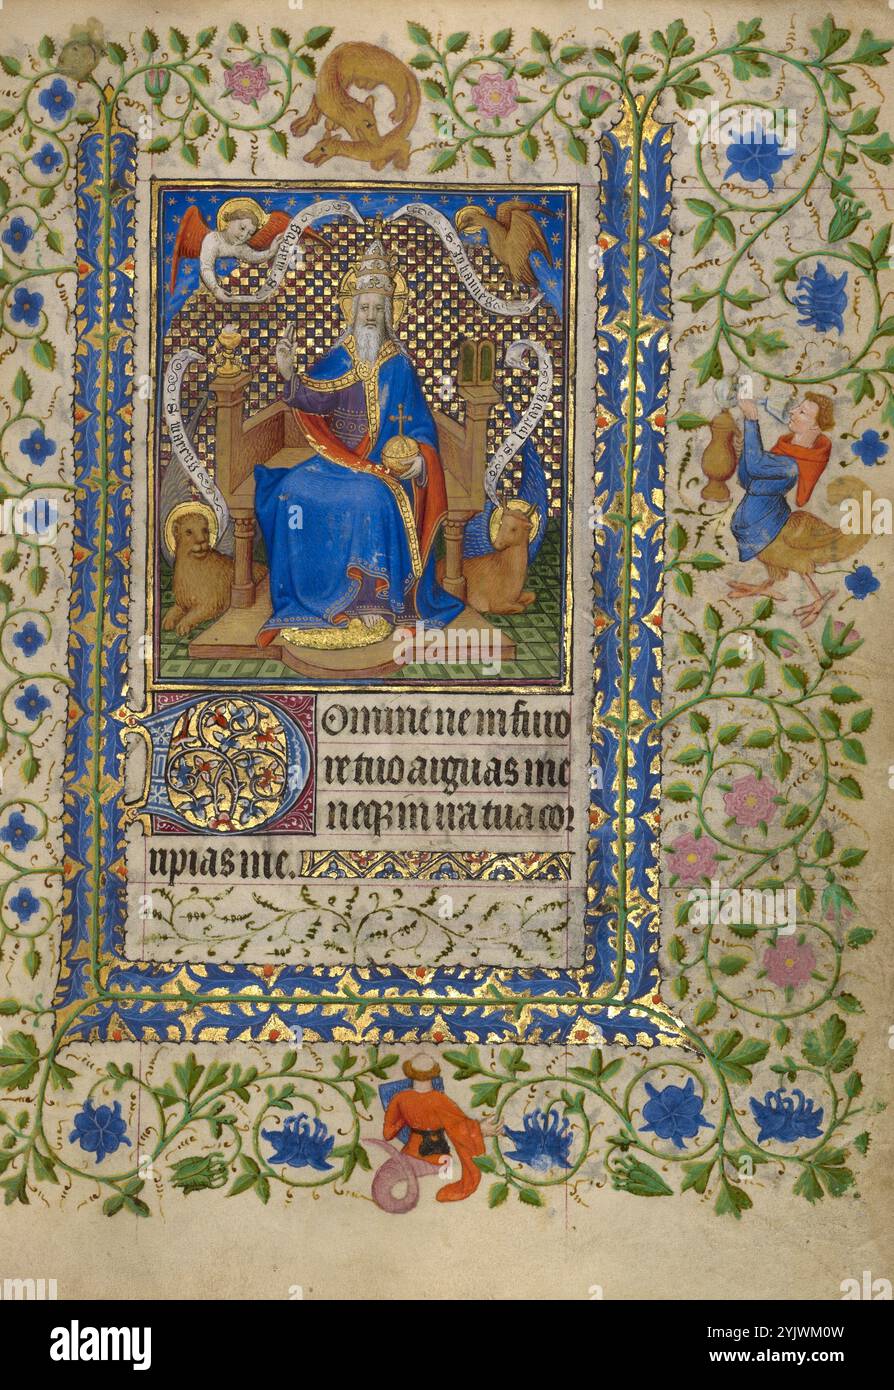 S Johannes
S marcus
S lucas
Domine ne in furo
re tuo arguas me
neq in ira tua cor
ripias me.
alamy
Image ID: 2YJWM0W
www.alamy.com